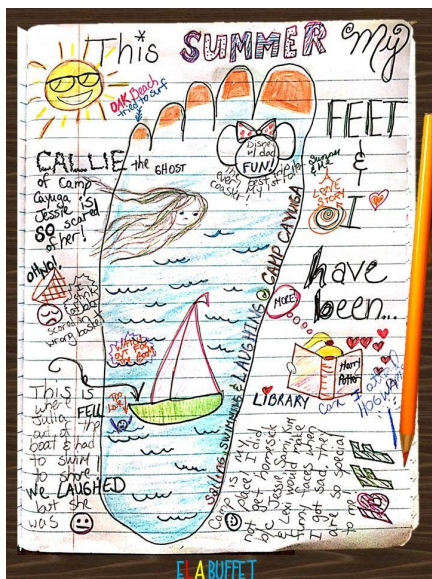 This SUMMER My
FEET
&
I
have
been...
OAK Beach
tried to surf
CALLIE the GHOST
of Camp
Cayuga
Jessie is
SO scared
of her!
Disney
w/ dad
FUN!
LOVE
STORY
OHNO!
I
wrong basket
SAILING, SWIMMING & LAUGHING @ CAMP CAYUGA
MORE
Harry
Potter
LIBRARY
THIS IS
where
Julia FELL
out of the
boat & had
to swim
to shore!
We LAUGHED
but she
was
Camp is my
place. I did
not get homesick
b/c Jessie, Sami,
& Lexi would make
funny faces when
I got sad, they
are so special
to me!
BFF
ELABUFFET